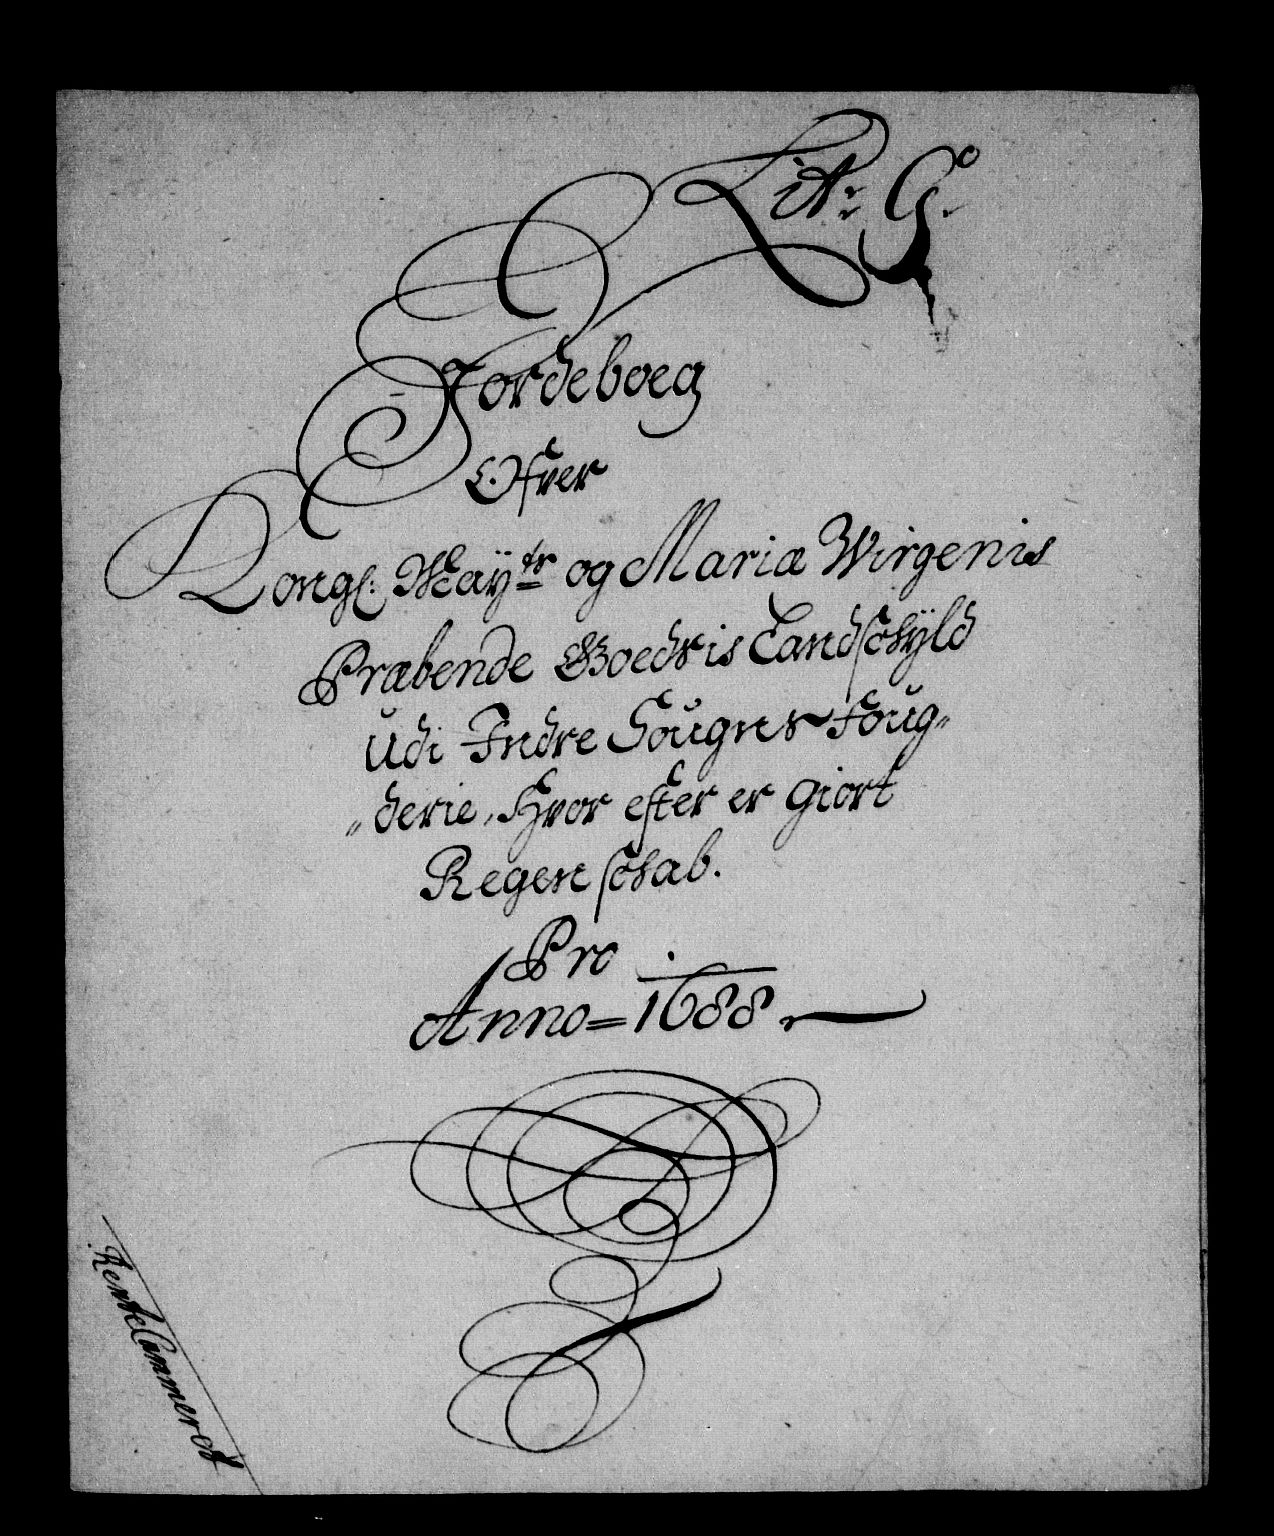 Lit: G.
Jordeboeg
Ofver
Kongl: Maÿtz og Mariæ Wirgenis
Præbende Goedsis Landschÿld
Udi Indre Sougns Foug„
„derie, Hvor efter er giort
Regenschab.
Pro
Anno = 1688.
RenteCammeret